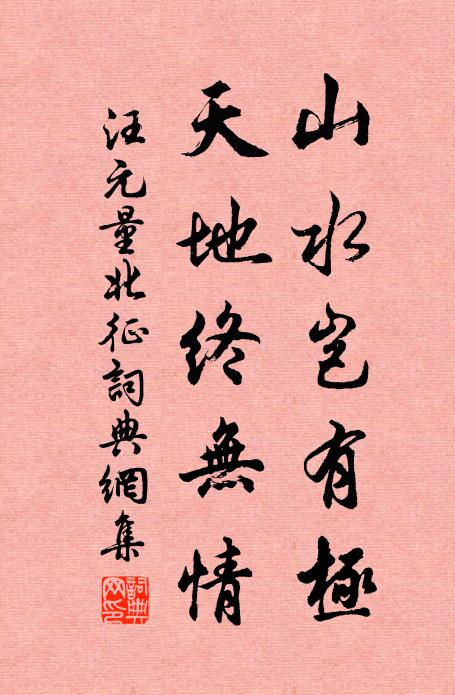 山水岂有極
天地終無情
汪元量北征詞典網集
詞典網印